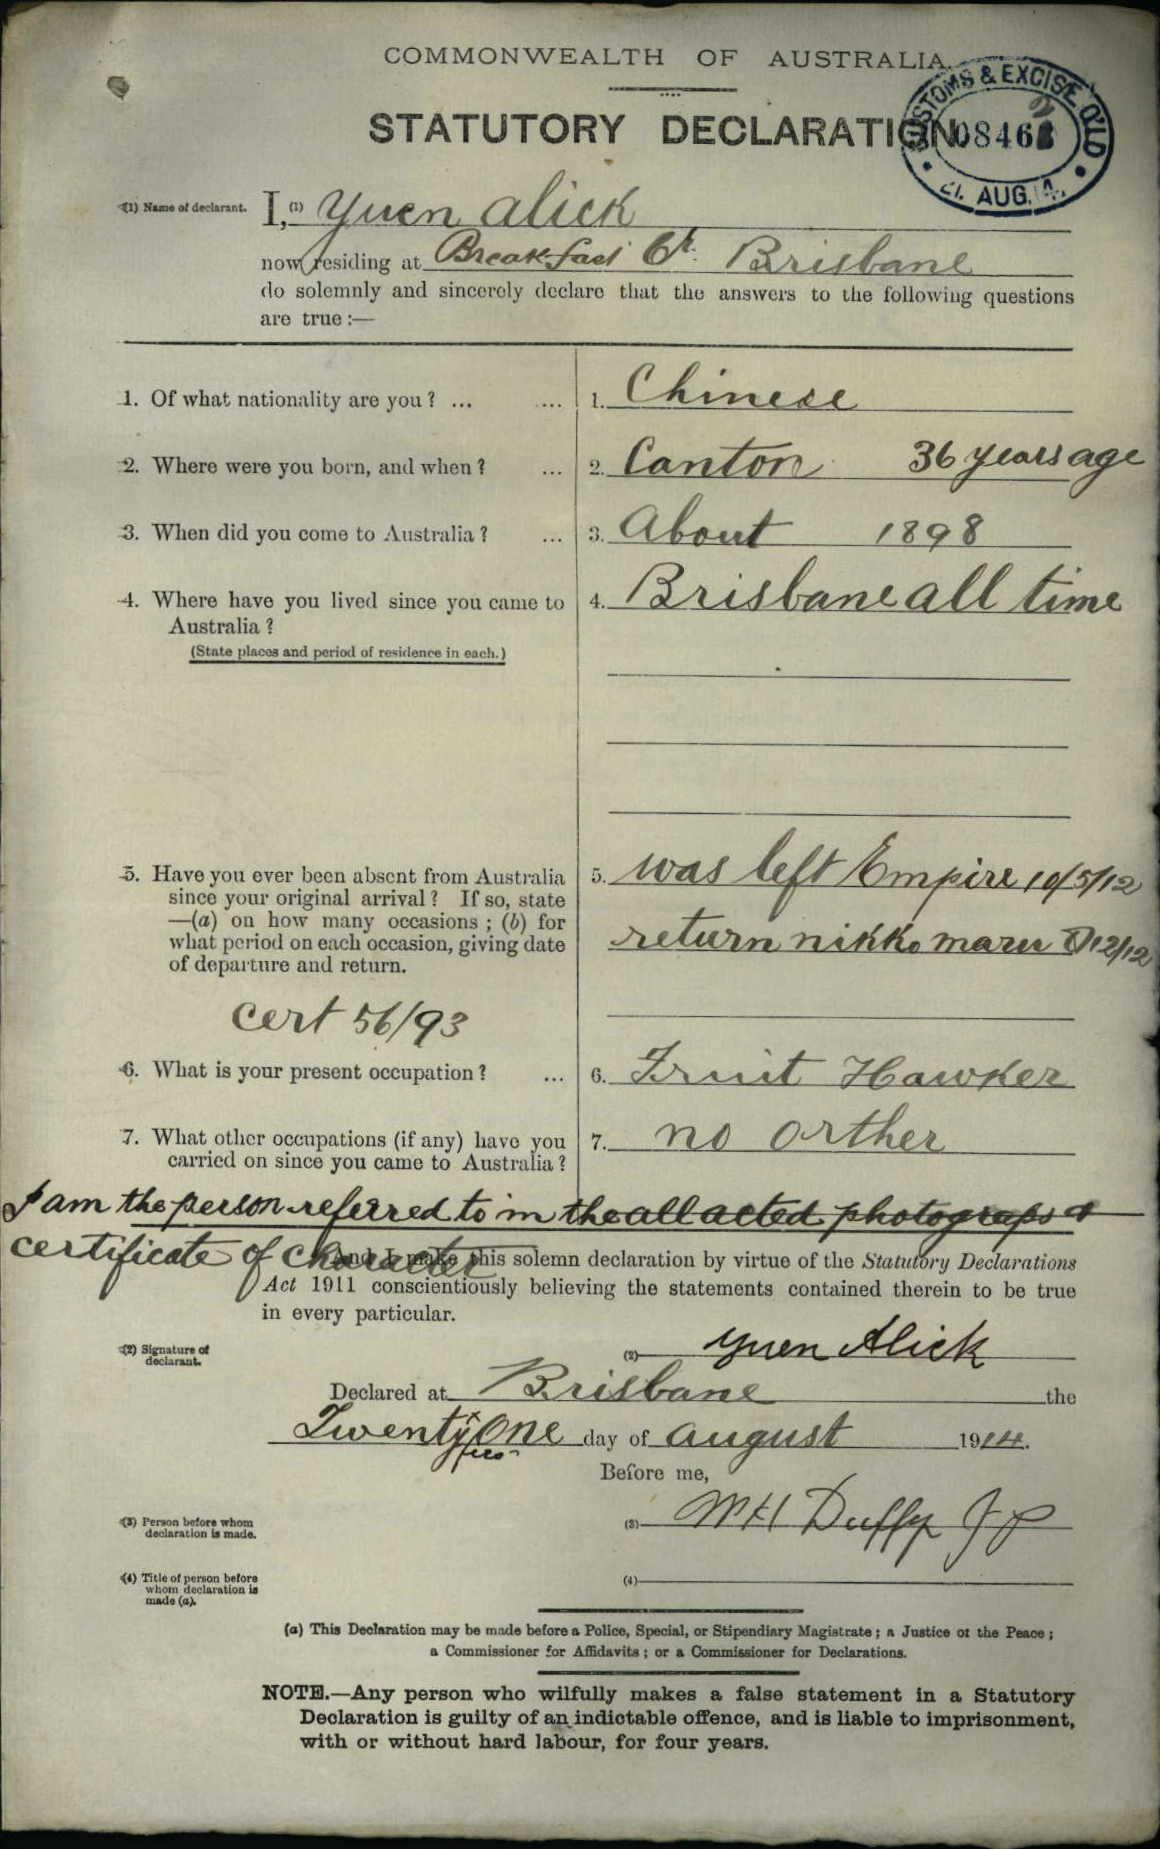 COMMONWEALTH OF AUSTRALIA.
STATUTORY DECLARATION.
CUSTOMS & EXCISE Q'LD
08463
21. AUG. 14.
(1) Name of declarant. I, (1) Yuen Alick
now residing at Breakfast Ck. Brisbane
do solemnly and sincerely declare that the answers to the following questions
are true:—
1. Of what nationality are you? ... ... 1. Chinese
2. Where were you born, and when? ... 2. Canton 36 years age
3. When did you come to Australia? ... 3. About 1898
4. Where have you lived since you came to 4. Brisbane all time
Australia?
(State places and period of residence in each.)
5. Have you ever been absent from Australia 5. was left Empire 10/5/12
since your original arrival? If so, state
—(a) on how many occasions; (b) for
what period on each occasion, giving date return nikko maru 12/12
of departure and return.
cert 56/93
6. What is your present occupation? ... 6. Fruit Hawker
7. What other occupations (if any) have you 7. no orther
carried on since you came to Australia?
I am the person referred to in the all acted photograps &
certificate of Character
And I make this solemn declaration by virtue of the Statutory Declarations
Act 1911 conscientiously believing the statements contained therein to be true
in every particular.
(2) Signature of
declarant. (2) Yuen Alick
Declared at Brisbane the
Twenty One day of august 1914.
Before me,
(3) Person before whom
declaration is made. (3) W H Duffy J P
(4) Title of person before
whom declaration is
made (a). (4)
(a) This Declaration may be made before a Police, Special, or Stipendiary Magistrate; a Justice of the Peace;
a Commissioner for Affidavits; or a Commissioner for Declarations.
NOTE.—Any person who wilfully makes a false statement in a Statutory
Declaration is guilty of an indictable offence, and is liable to imprisonment,
with or without hard labour, for four years.